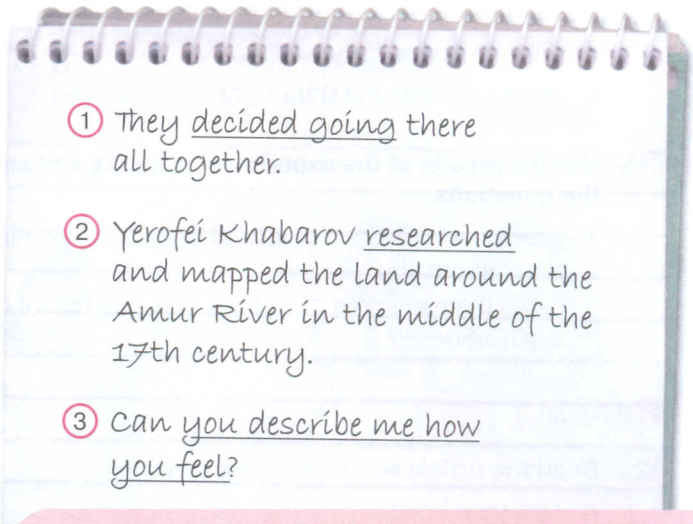 1 They decided going there
all together.
2 Yerofei Khabarov researched
and mapped the land around the
Amur River in the middle of the
17th century.
3 Can you describe me how
you feel?